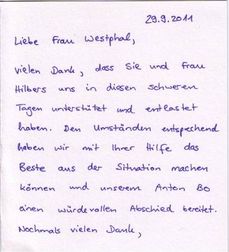 29.9.2011
Liebe Frau Westphal,
vielen Dank, dass Sie und Frau
Hilbers uns in diesen schweren
Tagen unterstützt und entlastet
haben. Den Umständen entsprechend
haben wir mit Ihrer Hilfe das
Beste aus der Situation machen
können und unserem Anton Bo
einen würdevollen Abschied bereitet.
Nochmals vielen Dank,